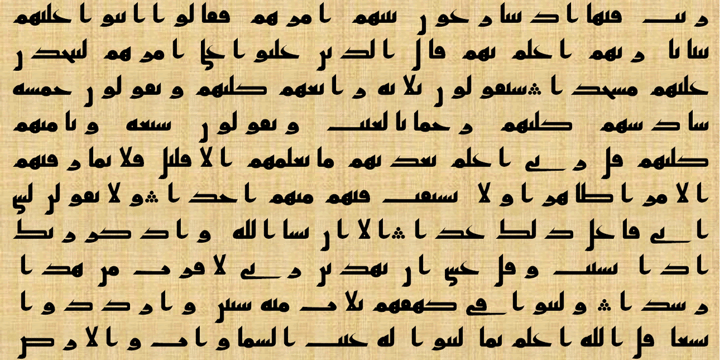 ريب فيها اذ يتنازعون بينهم امرهم فقالوا ابنوا عليهم
بنيانا ربهم اعلم بهم قال الذين غلبوا على امرهم لنتخذن
عليهم مسجدا ஃ سيقولون ثلاثة رابعهم كلبهم ويقولون خمسة
سادسهم كلبهم رجما بالغيب ويقولون سبعة وثامنهم
كلبهم قل ربي اعلم بعدتهم ما يعلمهم الا قليل فلا تمار فيهم
الا مرا ظاهرا ولا تستفت فيهم منهم احدا ஃ ولا تقولن لش
اي فاعل ذلك غدا ஃ الا ان يشا الله واذكر ربك
اذا نسيت وقل عسى ان يهدين ربي لاقرب من هذا
رشدا ஃ ولبثوا في كهفهم ثلاث مئة سنين وازدادوا
تسعا قل الله اعلم بما لبثوا له غيب السماوات والارض